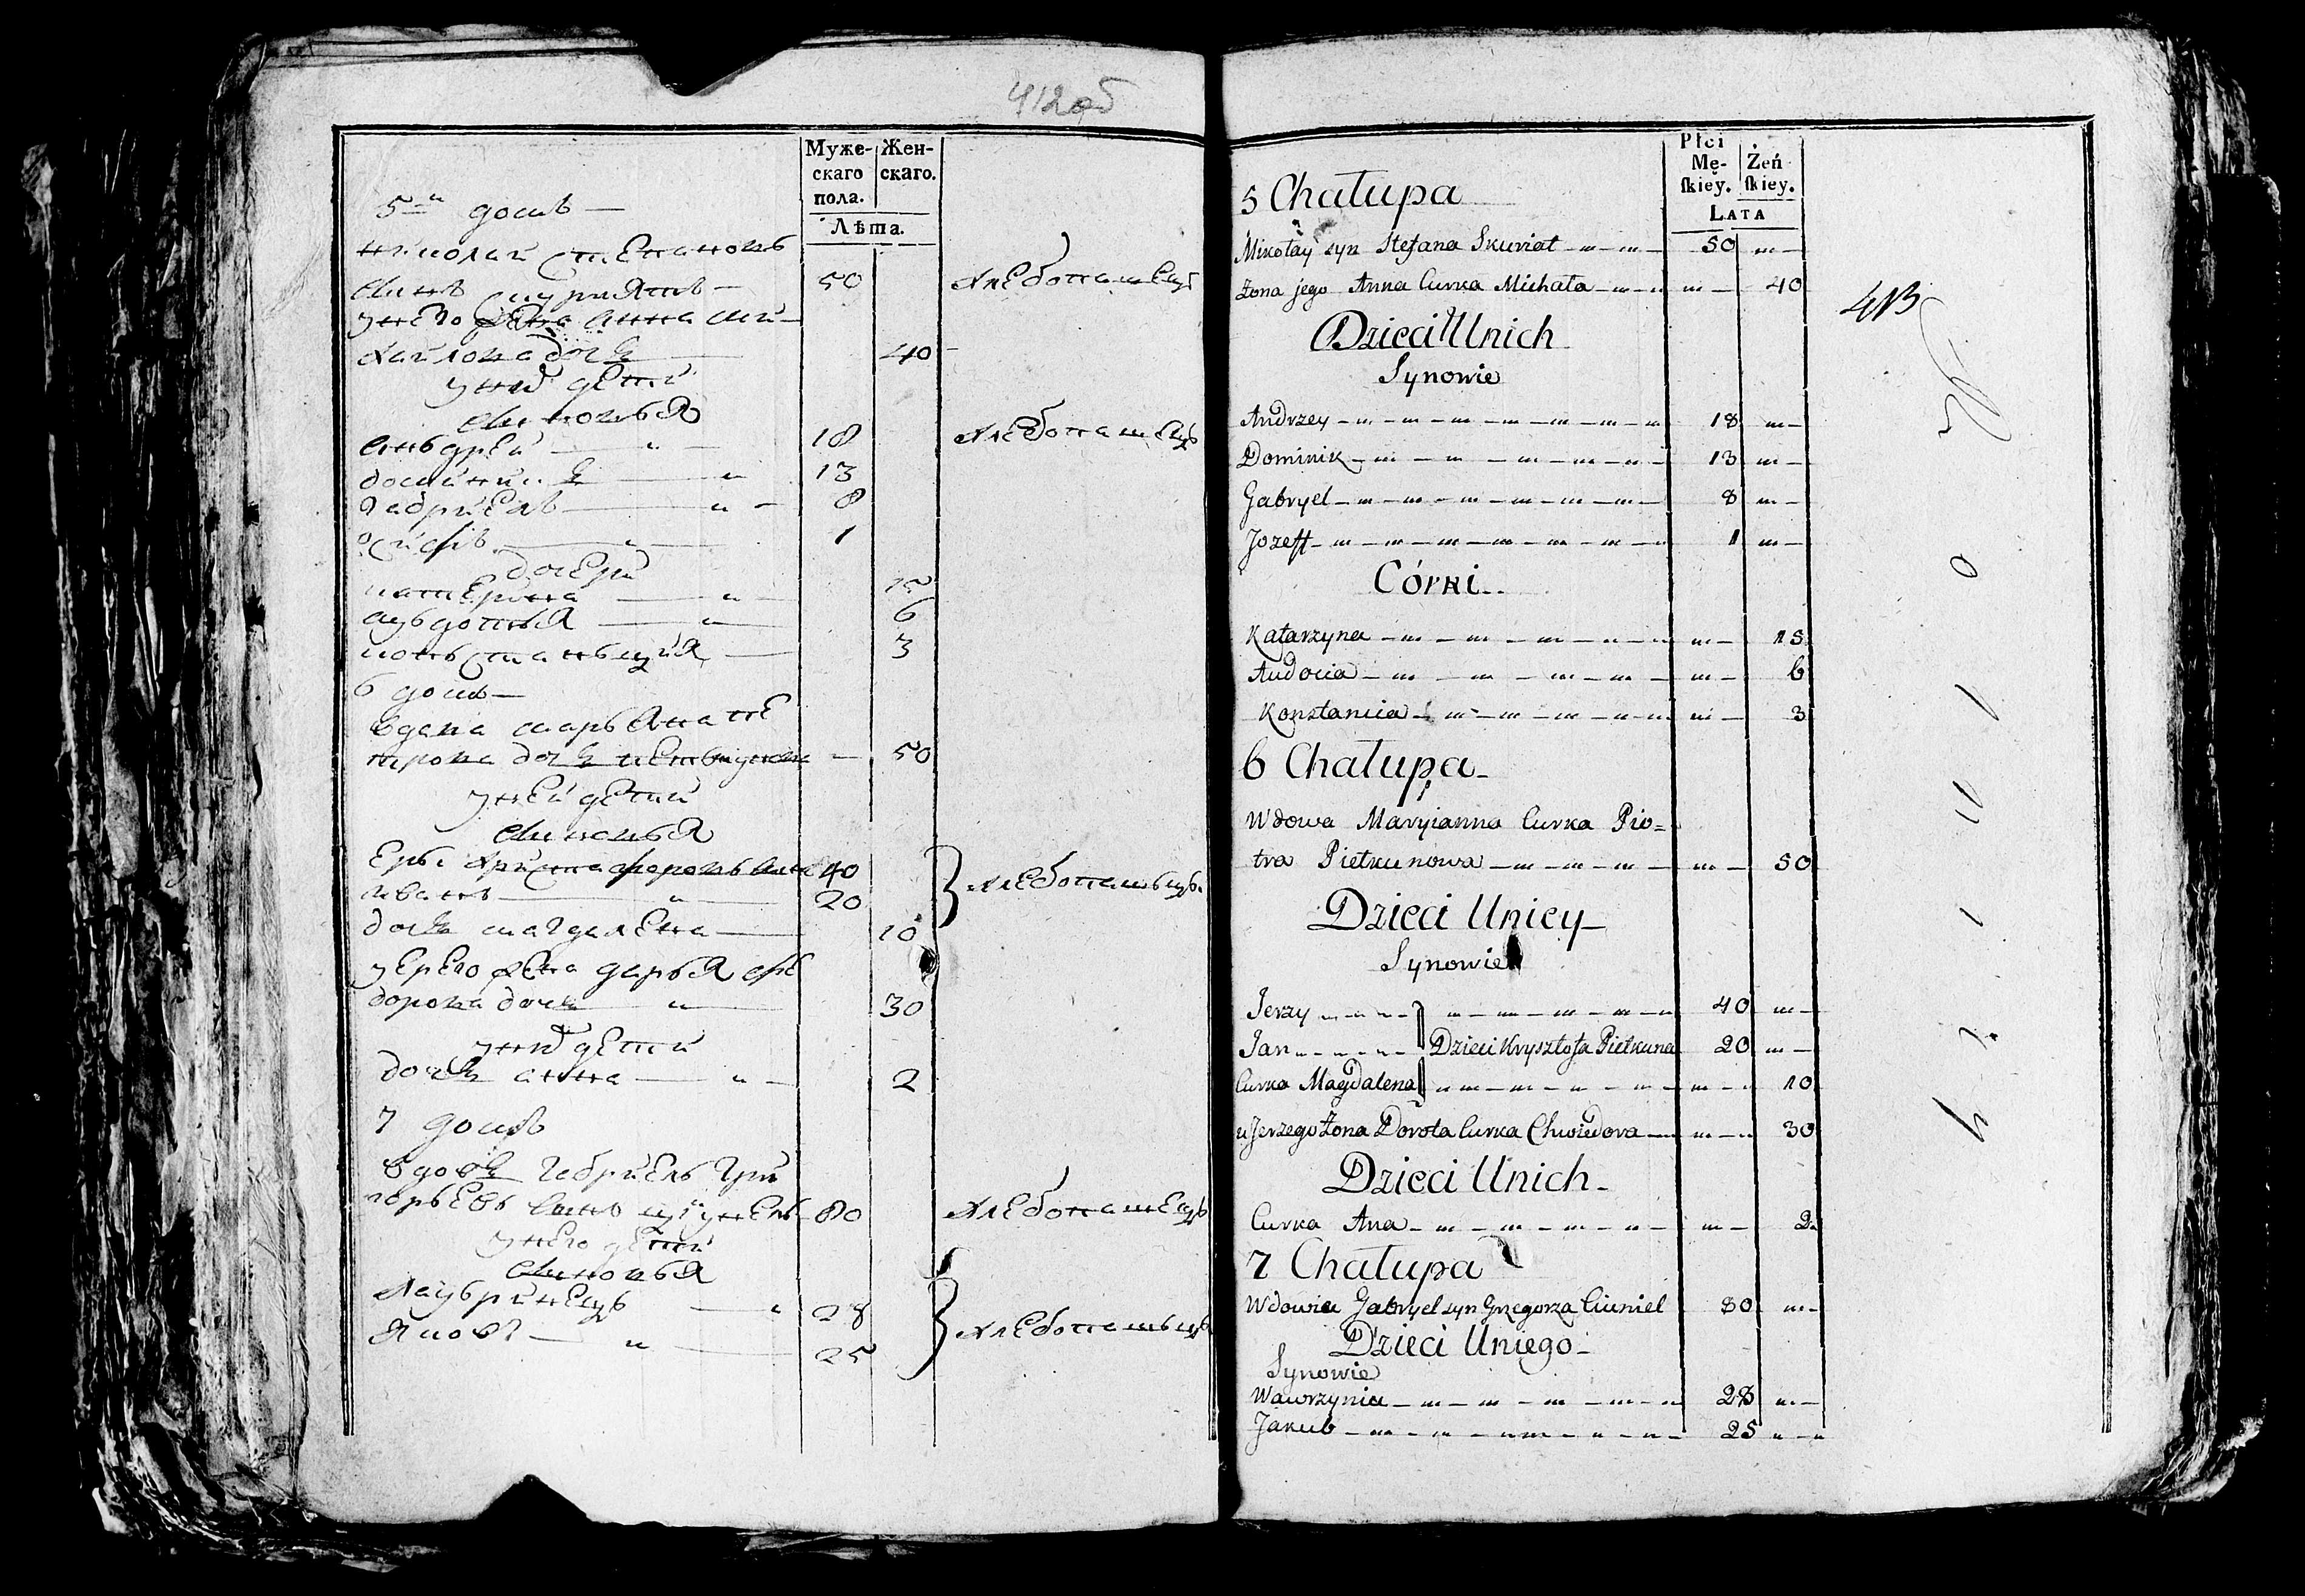 412об
Муже-
скаго
пола.
Жен-
скаго.
Лѣта.
5 й домъ —
николай степановъ
сынъ скурятъ — 50 хлебопашецъ
у него жена анна ми-
хайлова дочь 40
у них детей
сыновья
аньдрей — " — 18 хлебопашецъ
доминик — " 13
габриель — " — 8
осифъ — " — 1
дочери
катерина — " — 15
аувдотья — " — 6
коньстаньция — 3
6 домъ —
вдова марьяна пе
трова дочь петькунова — 50
у ней детей
сыновья
еры христофоровъ сынъ 40 хлебопашьцы
иванъ — " — 20
дочь магдалена — 10
у ерего жена дарья
дорова дочь " 30
у них детей
дочь анна — " — 2
7 домъ
вдовец габриель гри
горьевъ сынъ 80 хлебопашецъ
у него детей
сыновья
лаувринецъ — " 28 хлебопашьцы
яков — " — 25
Płci
Mę-
ſkiey.
Żeń
ſkiey.
LATA
5 Chałupa
Mikołay syn Stefana Skuriat — " — " — 50 " —
Żona jego Anna Curka Michała — " — " " — 40
413
Dzieci Unich
Synowie
Andrzey — " — " — " — " — " — " — " 18 " —
Dominik — " — " — " — " — " — 13 " —
Gabryel — " — " — " — " — " — " — 8 " —
Jozeff — " — " — " — " — " — " — " 1 " —
Córki
Katarzyna — " — " — " — " — " " — 15
Audocia — " — " — " — " — " — 6
Konstancia — " — " — " — " — " " — 3
6 Chałupa
Wdowa Maryianna Curka Pio=
tra Pietkunowa — " — " — " — " — 50
Dzieci Uniey
Synowie
Jerzy — " — " — " — " — " — " 40 " —
Jan " — " — " — Dzieci Krysztofa Pietkuna 20 " —
Curka Magdalena " " — " — " — " — " " — " 10
u Jerzego Żona Dorota Curka Chwiedora — " — " 30
Dzieci Unich
Curka Ana — " — " — " — " — " — 2
7 Chałupa
Wdowiec Gabryel syn Grzegorza Ciuniel 80 " —
Dzieci Uniego
Synowie
Wawrzyniec — " — " — " — " — " 28 " —
Jakub — " — " — " — " — " — 25 " — "